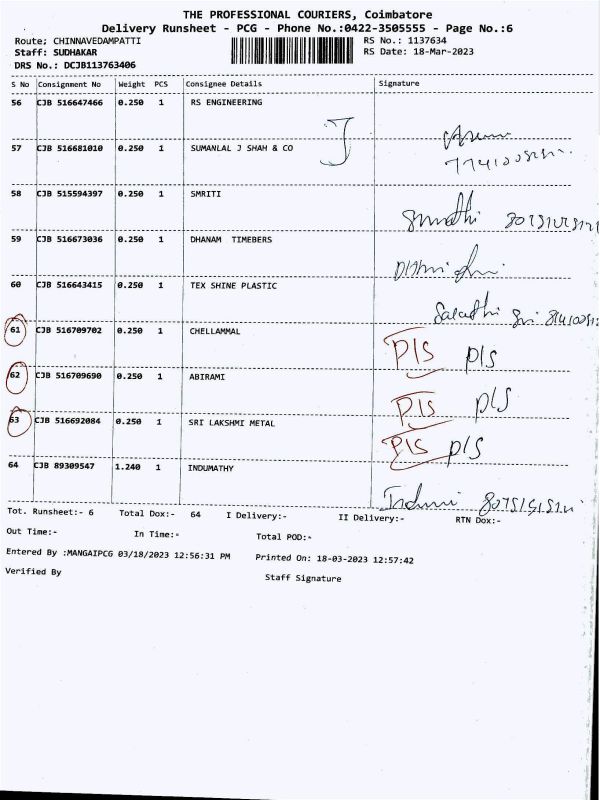 THE PROFESSIONAL COURIERS, Coimbatore
Delivery Runsheet - PCG - Phone No.:0422-3505555 - Page No.:6
Route; CHINNAVEDAMPATTI RS No.: 1137634
Staff: SUDHAKAR RS Date: 18-Mar-2023
DRS No.: DCJB113763406
S No Consignment No Weight PCS Consignee Details Signature
56 CJB 516647466 0.250 1 RS ENGINEERING
57 CJB 516681010 0.250 1 SUMANLAL J SHAH & CO
58 CJB 515594397 0.250 1 SMRITI
59 CJB 516673036 0.250 1 DHANAM TIMEBERS
60 CJB 516643415 0.250 1 TEX SHINE PLASTIC
61 CJB 516709702 0.250 1 CHELLAMMAL P/S P/S
62 CJB 516709690 0.250 1 ABIRAMI P/S P/S
63 CJB 516692084 0.250 1 SRI LAKSHMI METAL P/S P/S
64 CJB 89309547 1.240 1 INDUMATHY
Tot. Runsheet:- 6 Total Dox:- 64 I Delivery:- II Delivery:- RTN Dox:-
Out Time:- In Time:- Total POD:-
Entered By :MANGAIPCG 03/18/2023 12:56:31 PM Printed On: 18-03-2023 12:57:42
Verified By Staff Signature